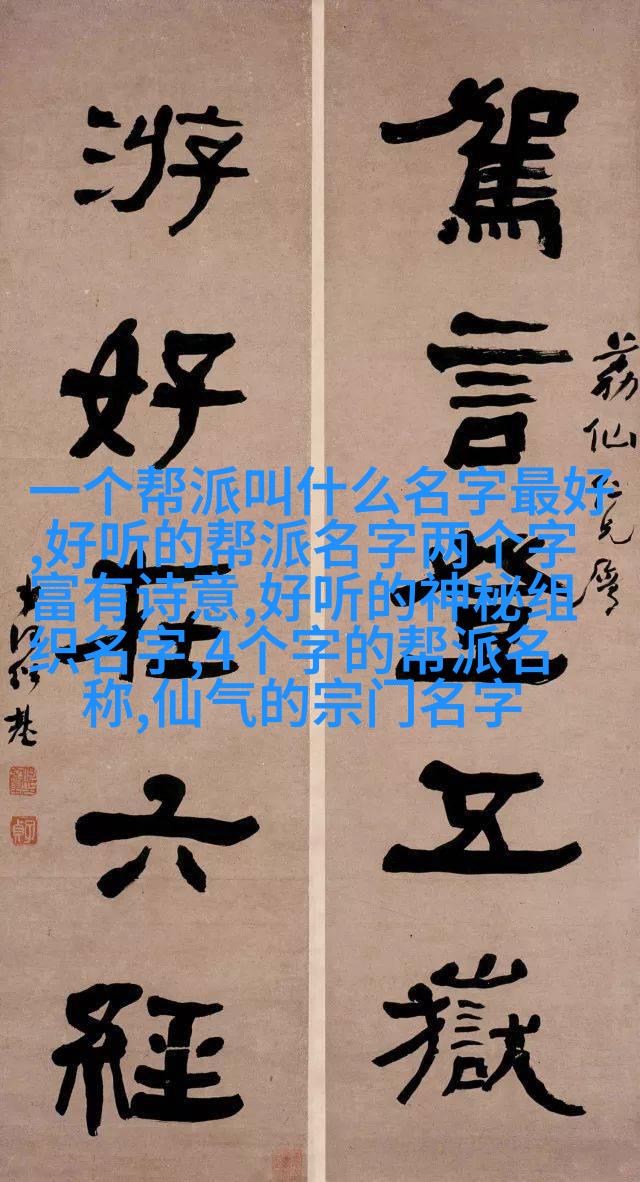 駕言登五嶽
荔仙仁兄屬
游好在六經
何紹基
子貞
一个帮派叫什么名字最好
,好听的帮派名字两个字
富有诗意,好听的神秘组
织名字,4个字的帮派名
称,仙气的宗门名字